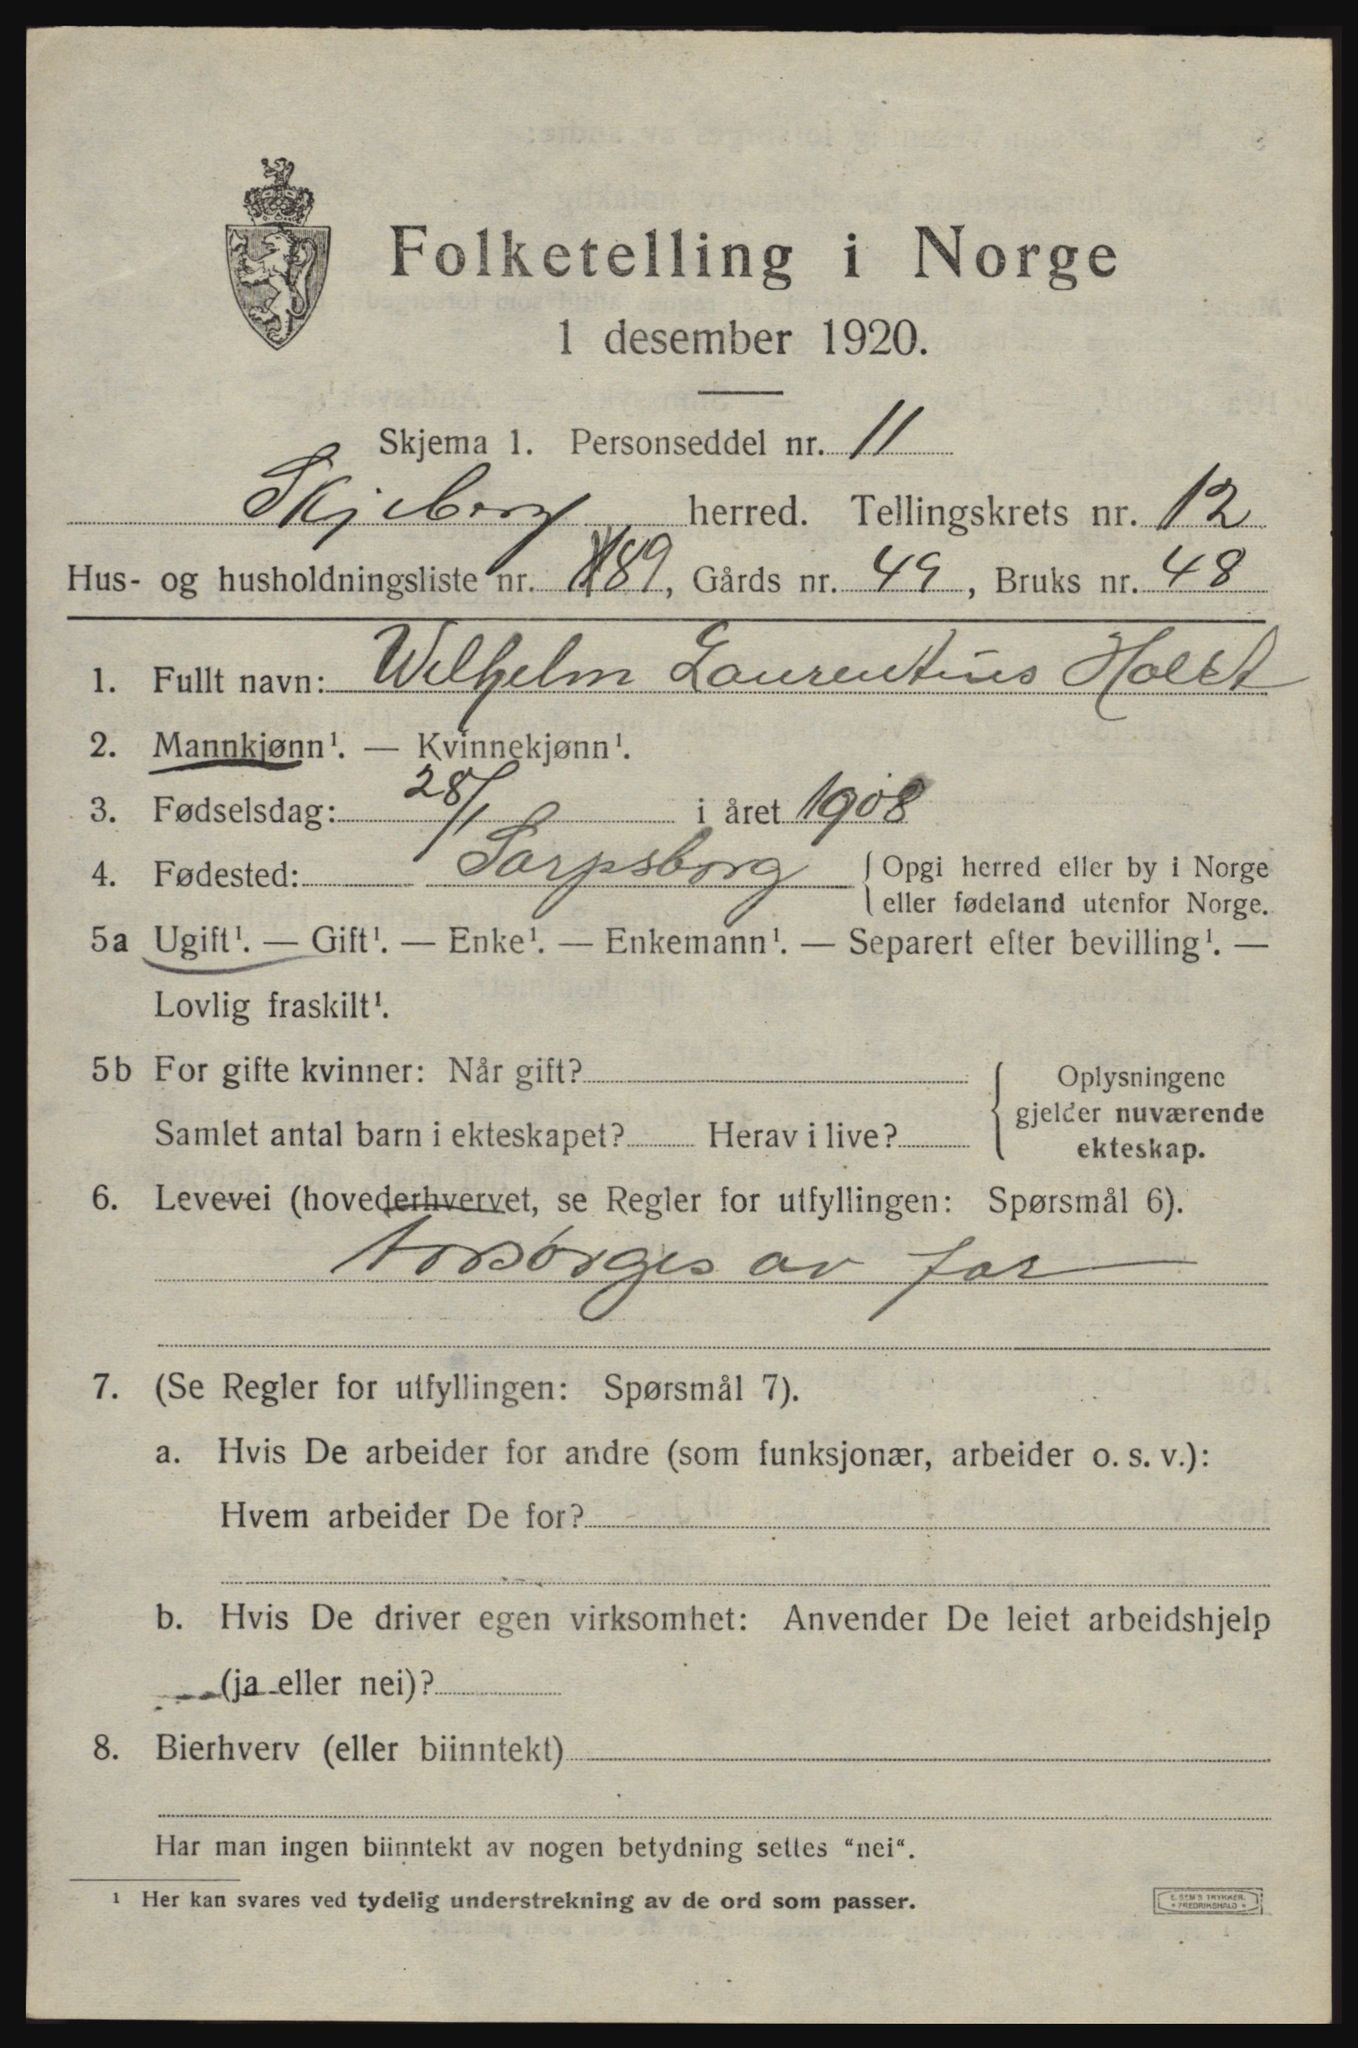 Folketelling i Norge
1 desember 1920.
Skjema 1. Personseddel nr. 11
Skjeberg herred. Tellingskrets nr. 12
Hus- og husholdningsliste nr. 189, Gårds nr. 49, Bruks nr. 48
1. Fullt navn: Wilhelm Laurentius Holst
2. Mannkjønn¹. — Kvinnekjønn¹.
3. Fødselsdag: 28/1 i året 1908
4. Fødested: Sarpsborg { Opgi herred eller by i Norge
eller fødeland utenfor Norge.
5a Ugift¹. — Gift¹. — Enke¹. — Enkemann¹. — Separert efter bevilling¹. —
Lovlig fraskilt¹.
5b For gifte kvinner: Når gift?
Samlet antal barn i ekteskapet? Herav i live?
{ Oplysningene
gjelder nuværende
ekteskap.
6. Levevei (hovederhvervet, se Regler for utfyllingen: Spørsmål 6).
Forsørges av far
7. (Se Regler for utfyllingen: Spørsmål 7).
a. Hvis De arbeider for andre (som funksjonær, arbeider o. s. v.):
Hvem arbeider De for?
b. Hvis De driver egen virksomhet: Anvender De leiet arbeidshjelp
(ja eller nei)?
8. Bierhverv (eller biinntekt)
Har man ingen biinntekt av nogen betydning settes "nei".
¹ Her kan svares ved tydelig understrekning av de ord som passer.
E. SEM'S TRYKKERI
* FREDRIKSHALD *